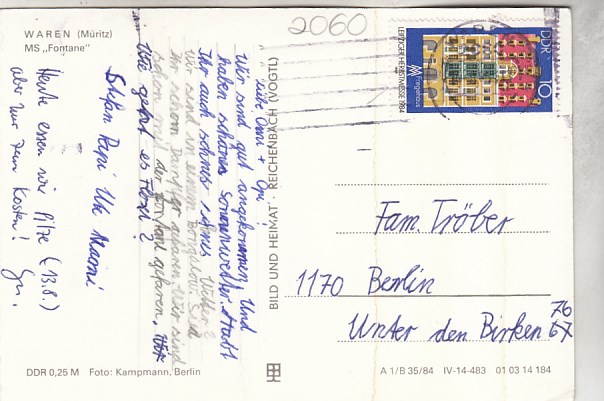 WAREN (Müritz)
MS „Fontane"
2060
LEIPZIGER HERBSTMESSE 1984
DDR
10
Liebe Omi + Opi!
Wir sind gut angekommen und
haben schönes Sommerwetter. Habt
Ihr auch schönes Wetter?
Wir sind in einem Bungalow. Seid
Ihr schon Dampfer gefahren. Wir sind
schon mal der Fontane gefahren.
Wie geht es Flori?
Stefan Papi Ute Mami
Heute essen wir Pilze (13.8.)
aber nur zum Kosten!
BILD UND HEIMAT · REICHENBACH (VOGTL)
Fam. Tröber
1170 Berlin
Unter den Birken 67
76
DDR 0,25 M Foto: Kampmann, Berlin
A 1/B 35/84 IV-14-483 01 03 14 184